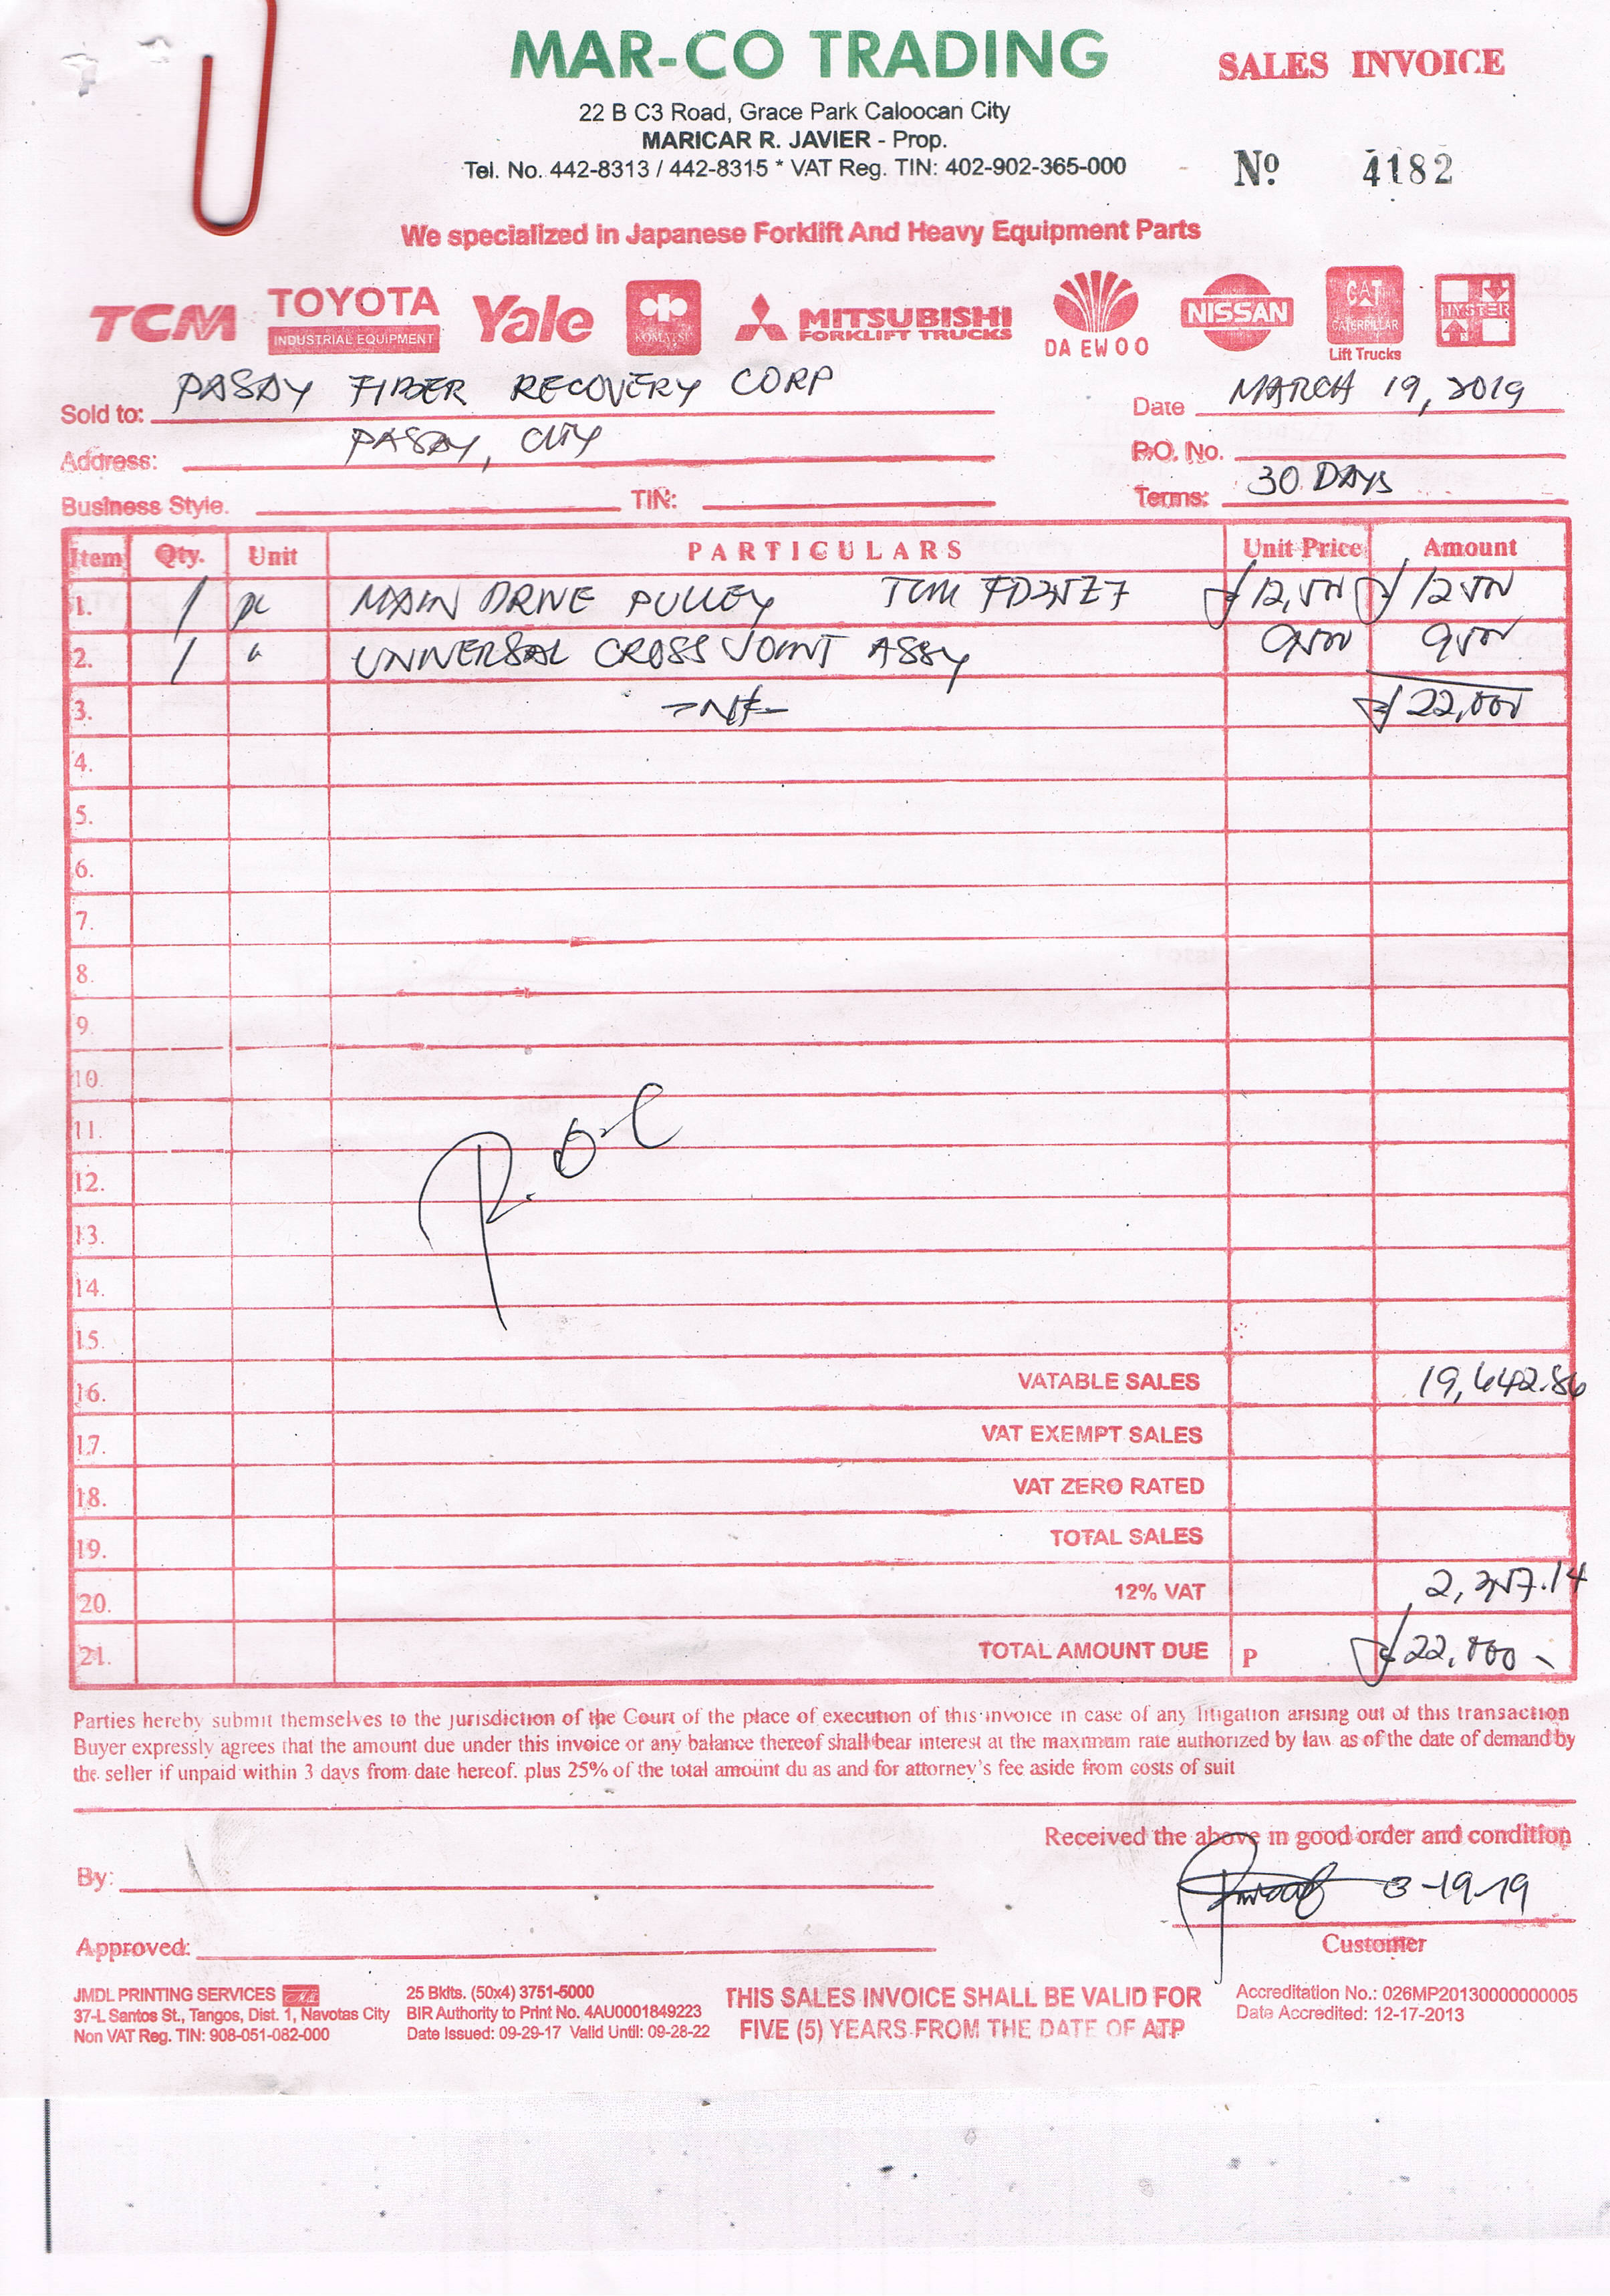 MAR-CO TRADING
SALES INVOICE
22 B C3 Road, Grace Park Caloocan City
MARICAR R. JAVIER - Prop.
Tel. No. 442-8313 / 442-8315 * VAT Reg. TIN: 402-902-365-000
Nº 4182
We specialized in Japanese Forklift And Heavy Equipment Parts
TCM TOYOTA INDUSTRIAL EQUIPMENT Yale KOMATSU MITSUBISHI FORKLIFT TRUCKS DAEWOO NISSAN CAT CATERPILLAR Lift Trucks HYSTER
Sold to: PASAY FIBER RECOVERY CORP
Date MARCH 19, 2019
Address: PASAY, CITY
P.O. No.
Business Style. TIN:
Terms: 30 DAYS
Item Qty. Unit PARTICULARS Unit Price Amount
1. 1 pc MAIN DRIVE PULLEY TCM FD35Z7 12,500 12500
2. 1 " UNIVERSAL CROSS JOINT ASSY 9500 9500
3. 22,000
4.
5.
6.
7.
8.
9.
10.
11.
12.
13.
14.
15.
16. VATABLE SALES 19,642.86
17. VAT EXEMPT SALES
18. VAT ZERO RATED
19. TOTAL SALES
20. 12% VAT 2,357.14
21. TOTAL AMOUNT DUE P 22,000-
Parties hereby submit themselves to the jurisdiction of the Court of the place of execution of this invoice in case of any litigation arising out of this transaction
Buyer expressly agrees that the amount due under this invoice or any balance thereof shall bear interest at the maxmum rate authorized by law as of the date of demand by
the seller if unpaid within 3 days from date hereof. plus 25% of the total amount du as and for attorney's fee aside from costs of suit
Received the above in good order and condition
By:
3-19-19
Approved:
Customer
JMDL PRINTING SERVICES
37-L Santos St., Tangos, Dist. 1, Navotas City
Non VAT Reg. TIN: 908-051-082-000
25 Bklts. (50x4) 3751-5000
BIR Authority to Print No. 4AU0001849223
Date Issued: 09-29-17 Valid Until: 09-28-22
THIS SALES INVOICE SHALL BE VALID FOR
FIVE (5) YEARS FROM THE DATE OF ATP
Accreditation No.: 026MP20130000000005
Date Accredited: 12-17-2013